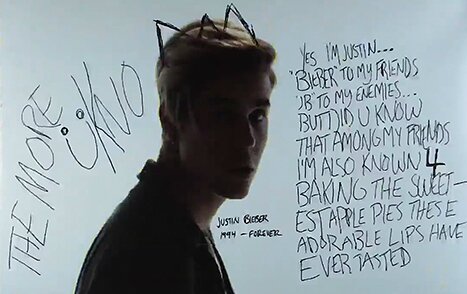 THE MORE
ÜKNO
YES I'M JUSTIN...
"BIEBER" TO MY FRIENDS
"JB" TO MY ENEMIES...
BUT DID U KNOW
THAT AMONG MY FRIENDS
I'M ALSO KNOWN 4
BAKING THE SWEET-
EST APPLE PIES THESE
ADORABLE LIPS HAVE
EVER TASTED
JUSTIN BIEBER
1994 - FOREVER